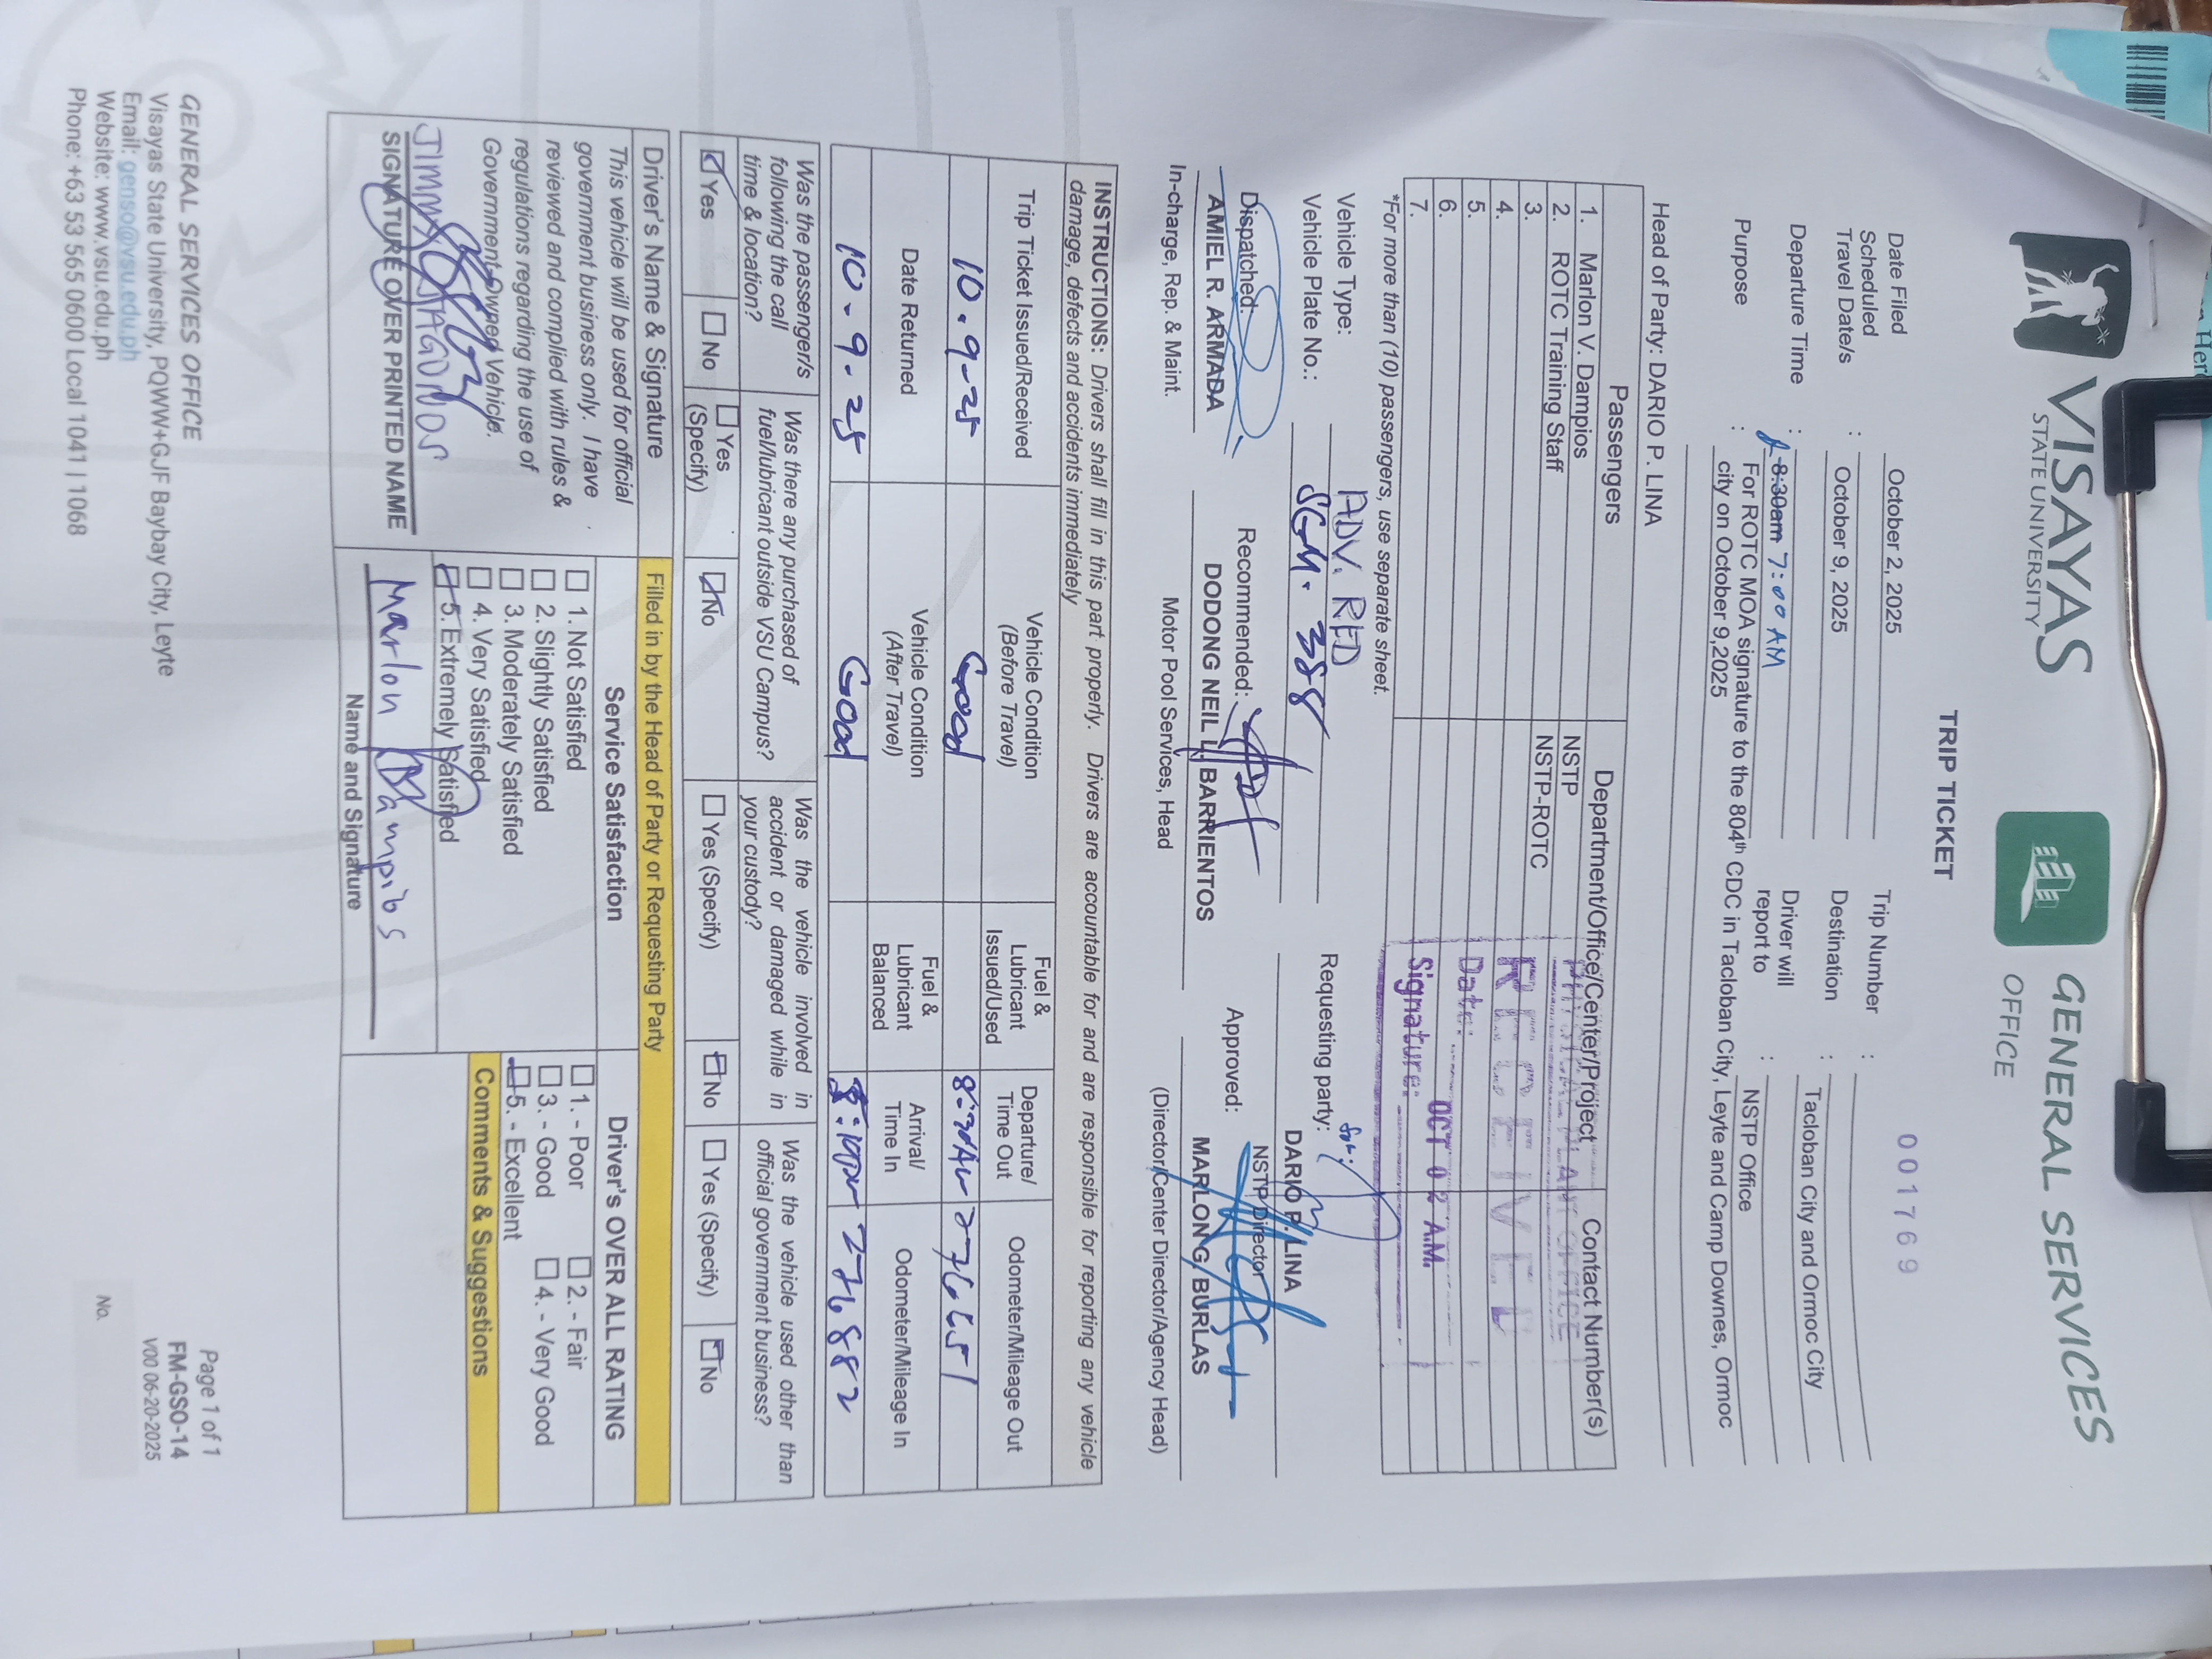 VISAYAS
STATE UNIVERSITY
GENERAL SERVICES
OFFICE
001769
TRIP TICKET
Date Filed : October 2, 2025
Trip Number :
Scheduled
Travel Date/s : October 9, 2025
Destination : Tacloban City and Ormoc City
Departure Time : 8:30am 7:00 AM
Driver will
report to : NSTP Office
Purpose : For ROTC MOA signature to the 804th CDC in Tacloban City, Leyte and Camp Downes, Ormoc
city on October 9,2025
Head of Party: DARIO P. LINA
Passengers Department/Office/Center/Project Contact Number(s)
1. Marlon V. Dampios NSTP
2. ROTC Training Staff NSTP-ROTC
3.
4.
5.
6.
7.
RECEIVED
Date:
OCT 02 A.M.
Signature:
*For more than (10) passengers, use separate sheet.
Vehicle Type: ADV. RED
Vehicle Plate No.: SGM. 388
Requesting party:
for:
DARIO P. LINA
NSTP Director
Dispatched: Recommended: Approved:
AMIEL R. ARMADA DODONG NEIL L. BARRIENTOS MARLON G. BURLAS
In-charge, Rep. & Maint. Motor Pool Services, Head (Director/Center Director/Agency Head)
INSTRUCTIONS: Drivers shall fill in this part properly. Drivers are accountable for and are responsible for reporting any vehicle
damage, defects and accidents immediately
Trip Ticket Issued/Received
Vehicle Condition
(Before Travel)
Fuel &
Lubricant
Issued/Used
Departure/
Time Out
Odometer/Mileage Out
10.9-25 Good 8:30AM 276651
Date Returned
Vehicle Condition
(After Travel)
Fuel &
Lubricant
Balanced
Arrival/
Time In
Odometer/Mileage In
10.9.25 Good 276882
Was the passenger/s
following the call
time & location?
Was there any purchased of
fuel/lubricant outside VSU Campus?
Was the vehicle involved in
accident or damaged while in
your custody?
Was the vehicle used other than
official government business?
Yes
No
Yes
(Specify)
No
Yes (Specify)
No
Yes (Specify)
No
Driver's Name & Signature
Filled in by the Head of Party or Requesting Party
This vehicle will be used for official
government business only. I have
reviewed and complied with rules &
regulations regarding the use of
Government-Owned Vehicle.
SIGNATURE OVER PRINTED NAME
Service Satisfaction
1. Not Satisfied
2. Slightly Satisfied
3. Moderately Satisfied
4. Very Satisfied
5. Extremely Satisfied
Marlon Dampios
Name and Signature
Driver's OVER ALL RATING
1. - Poor 2. - Fair
3. - Good 4. - Very Good
5. - Excellent
Comments & Suggestions
GENERAL SERVICES OFFICE
Visayas State University, PQWW+GJF Baybay City, Leyte
Email: genso@vsu.edu.ph
Website: www.vsu.edu.ph
Phone: +63 53 565 0600 Local 1041 | 1068
Page 1 of 1
FM-GSO-14
V00 06-20-2025
No.